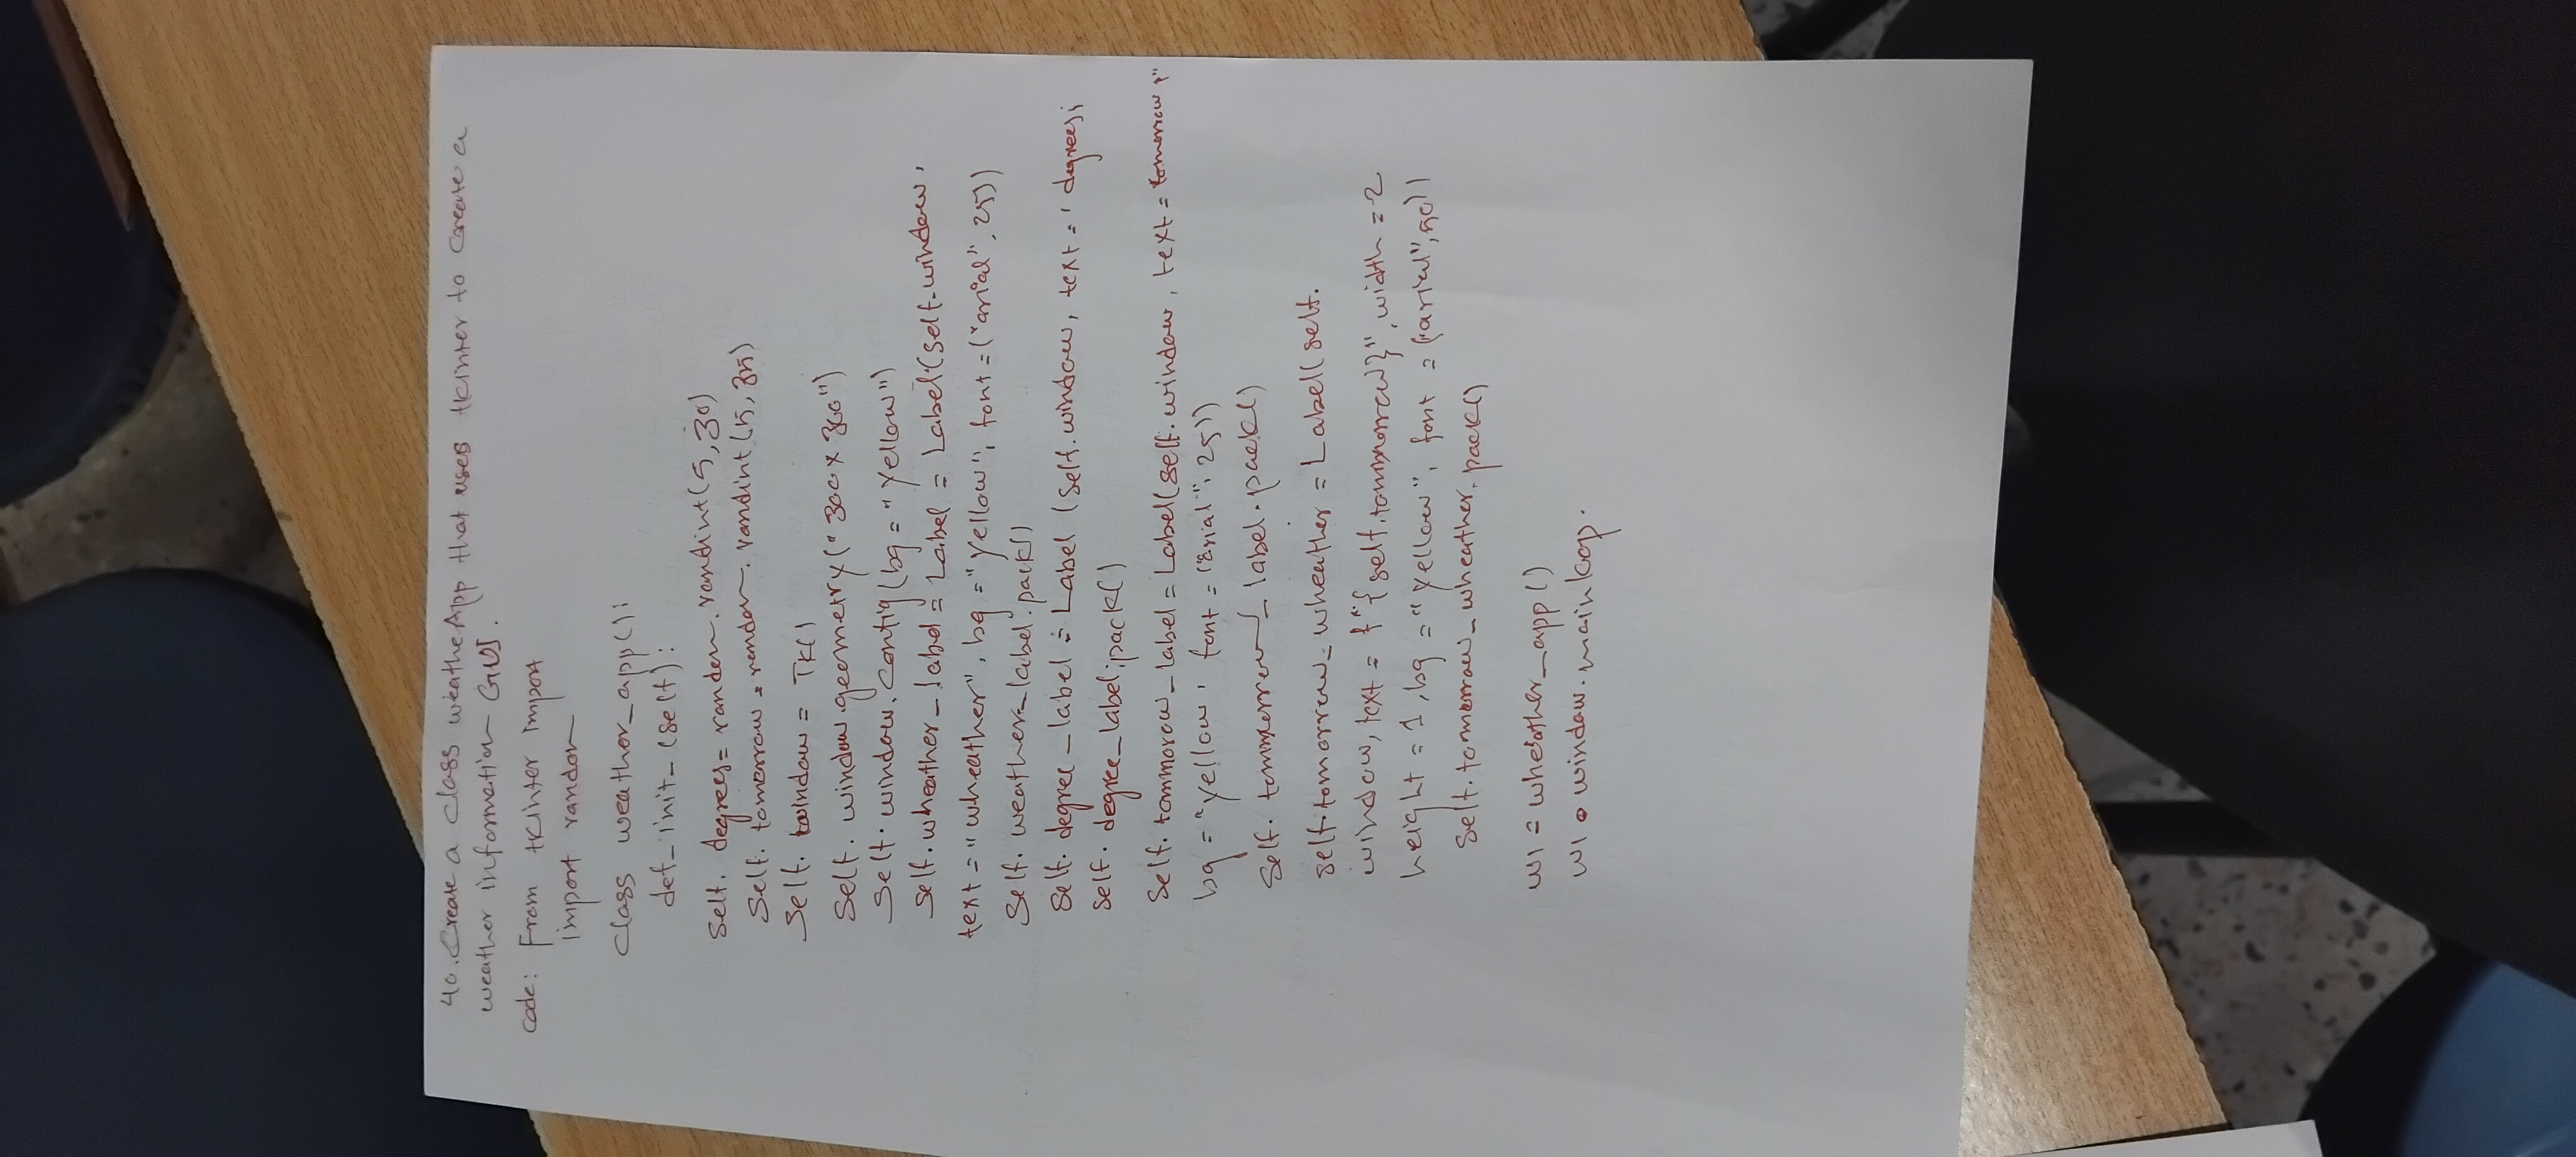 40. Create a class weatheApp that uses tkinter to create a
weather information GUI.
code: From tkinter import
import random
class weather_app():
def_init_(self):
self. degrees= random.randint(5,30)
self. tomorrow = random. randint(15, 35)
self. window = TK()
self. window.geometry("300x300")
self. window. config(bg = "yellow")
self. wheather_label = Label = Label(self.window,
text = "wheather", bg = "yellow", font = ("arial", 25))
self. weather_label.pack()
self. degree_label = Label (self.window, text = ' degrees;
self. degree_label;pack()
self. tommorow_label = Label(self.window, text = tomorrow,"
bg = "yellow, font = ("arial", 25))
self. tommorrow_label.pack()
self.tomorrow_wheather = Label(self.
window, text = f"{self.tommorrow}", width = 2
height = 1, bg = "yellow", font = ("arial",50))
self.tomorrow_wheather.pack()
w1 = wheather_app()
w1.window.mainloop.